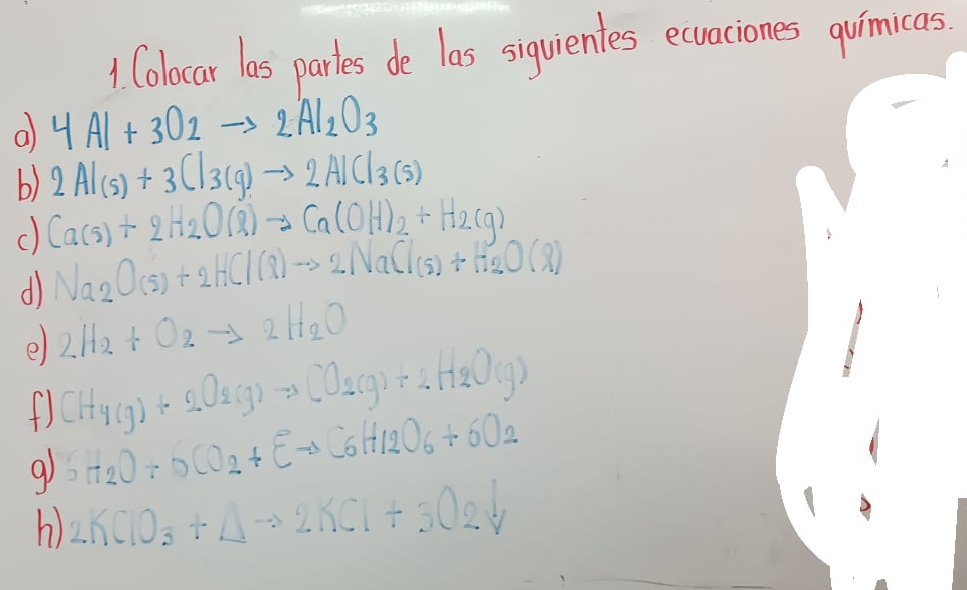 1. Colocar las partes de las siguientes ecuaciones químicas.
a) 4 Al + 3O2 → 2Al2O3
b) 2 Al(s) + 3Cl3(g) → 2AlCl3(s)
c) Ca(s) + 2H2O(l) → Ca(OH)2 + H2(g)
d) Na2O(s) + 2HCl(l) → 2NaCl(s) + H2O(l)
e) 2H2 + O2 → 2H2O
f) CH4(g) + 2O2(g) → CO2(g) + 2H2O(g)
g) 6H2O + 6CO2 + E → C6H12O6 + 6O2
h) 2KClO3 + Δ → 2KCl + 3O2↓